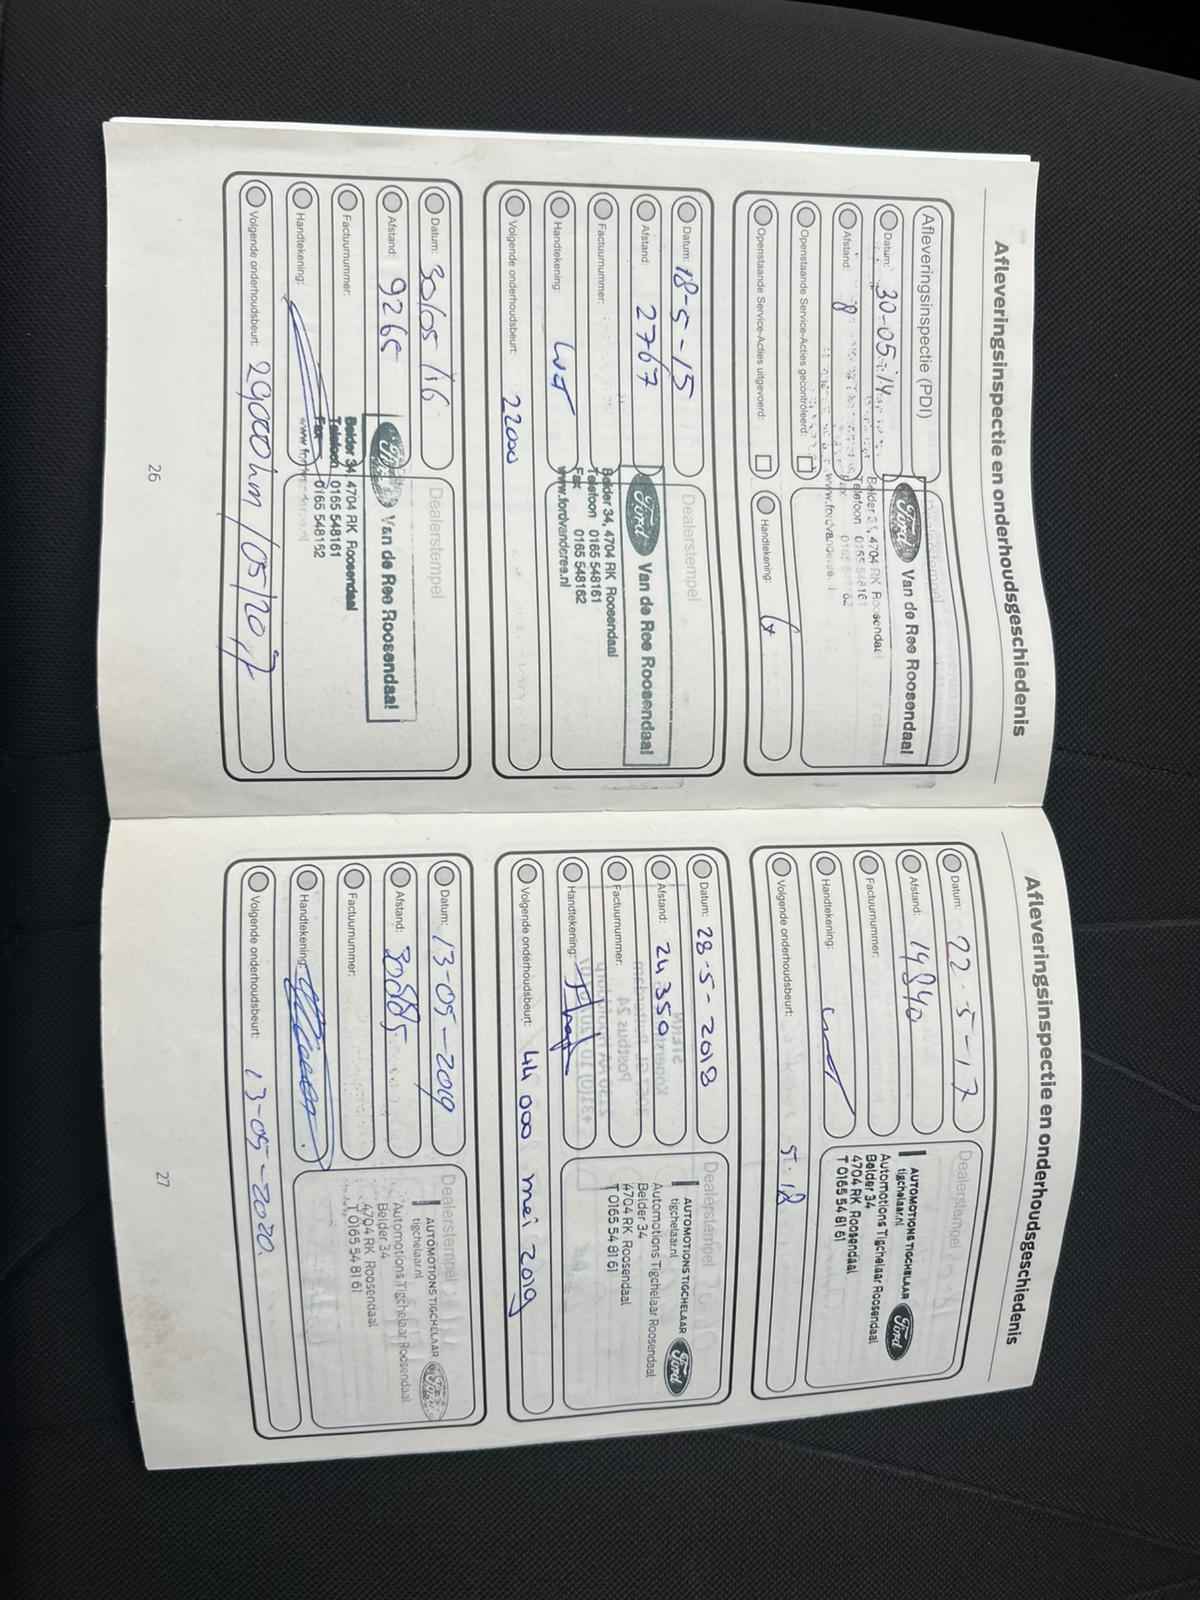 Afleveringsinspectie en onderhoudsgeschiedenis
Afleveringsinspectie (PDI)
Datum: 30-05-'14
Afstand: 8
Openstaande Service-Acties gecontroleerd:
Openstaande Service-Acties uitgevoerd:
Dealerstempel
Ford Van de Ree Roosendaal
Belder 34, 4704 RK Roosendaal
Telefoon 0165 548161
Fax 0165 548162
Handtekening:
Datum: 18-5-15
Afstand: 2767
Factuurnummer:
Handtekening:
Volgende onderhoudsbeurt: 22000
Dealerstempel
Ford Van de Ree Roosendaal
Belder 34, 4704 RK Roosendaal
Telefoon 0165 548161
Fax 0165 548162
www.fordvanderee.nl
Datum: 30/05/16
Afstand: 9265
Factuurnummer:
Handtekening:
Volgende onderhoudsbeurt: 29000km /05/2017
Dealerstempel
Ford Van de Ree Roosendaal
Belder 34, 4704 RK Roosendaal
Telefoon 0165 548161
Fax 0165 548162
26
Afleveringsinspectie en onderhoudsgeschiedenis
Datum: 22-5-17
Afstand: 19840
Factuurnummer:
Handtekening:
Volgende onderhoudsbeurt: 5-18
Dealerstempel
AUTOMOTIONS TIGCHELAAR Ford
tigchelaar.nl
Automotions Tigchelaar Roosendaal
Belder 34
4704 RK Roosendaal
T 0165 54 81 61
Datum: 28-5-2018
Afstand: 24350
Factuurnummer:
Handtekening:
Volgende onderhoudsbeurt: 44 000 mei 2019
Dealerstempel
AUTOMOTIONS TIGCHELAAR Ford
tigchelaar.nl
Automotions Tigchelaar Roosendaal
Belder 34
4704 RK Roosendaal
T 0165 54 81 61
Datum: 13-05-2019
Afstand: 30885
Factuurnummer:
Handtekening:
Volgende onderhoudsbeurt: 13-05-2020.
Dealerstempel
AUTOMOTIONS TIGCHELAAR Ford
tigchelaar.nl
Automotions Tigchelaar Roosendaal
Belder 34
4704 RK Roosendaal
T 0165 54 81 61
27